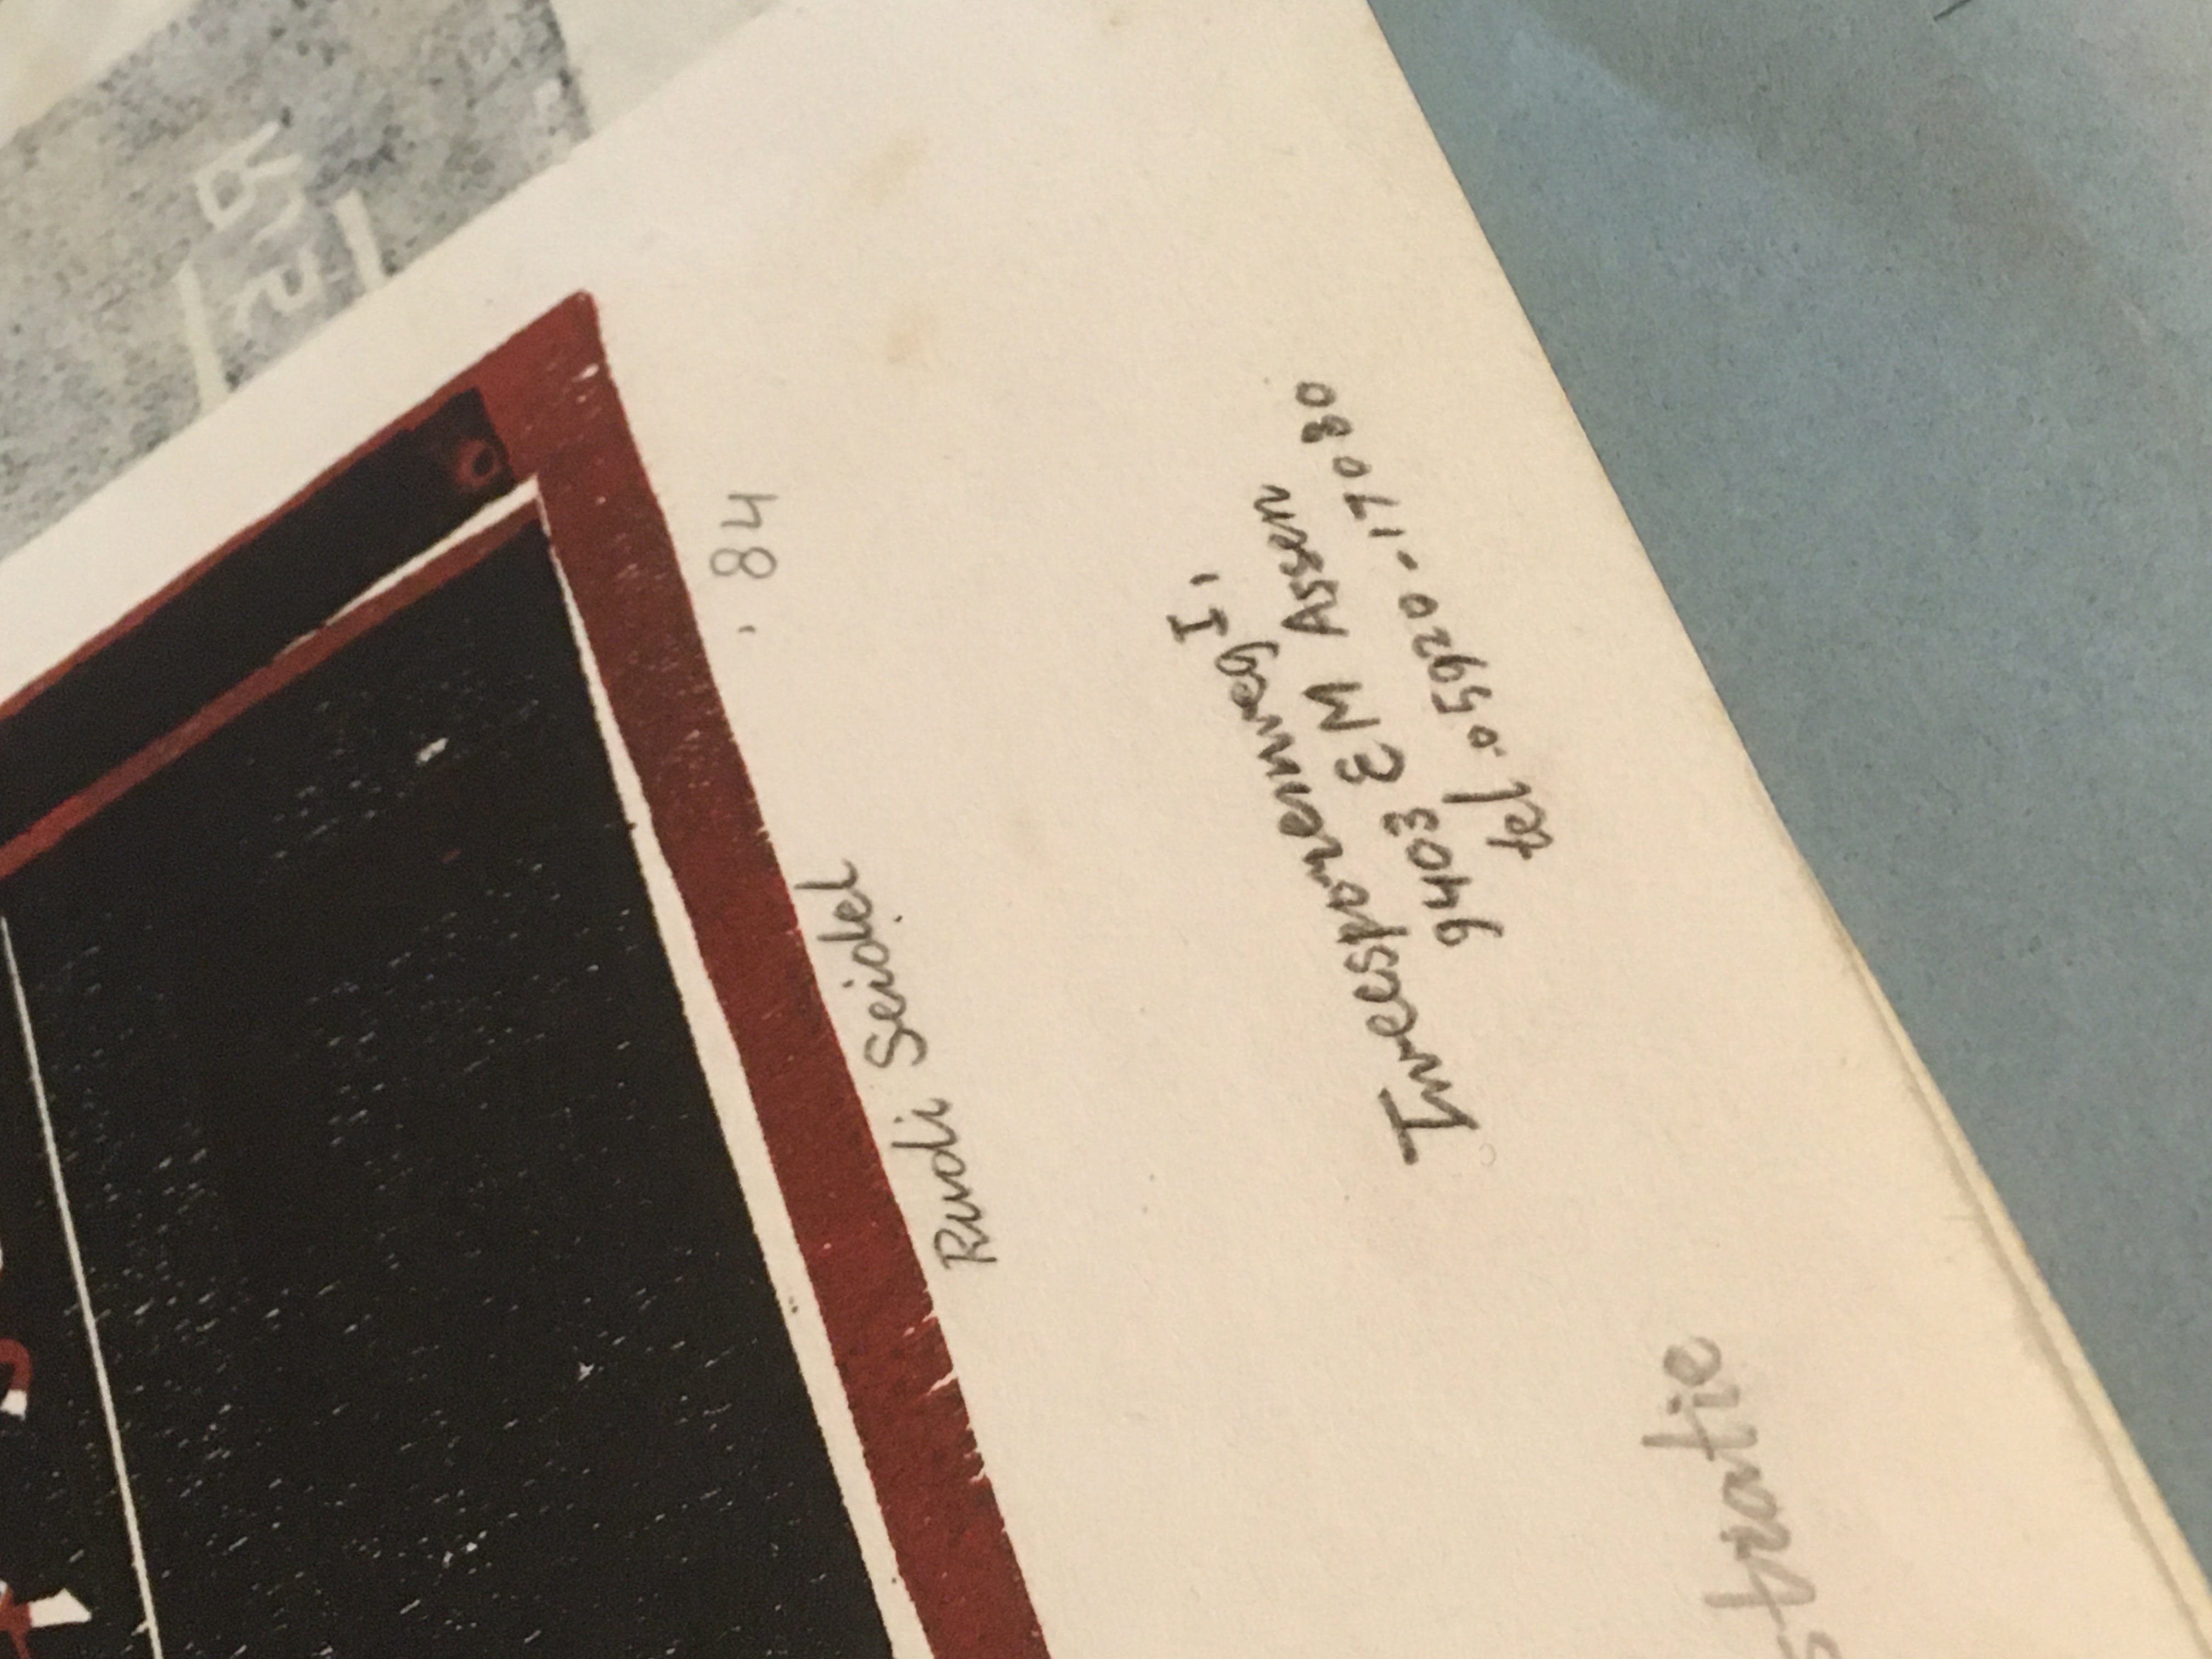 '84
Rudi Seidel
Tweesporenweg I,
9403 EM Assen
tel. 05920-17080
stratie